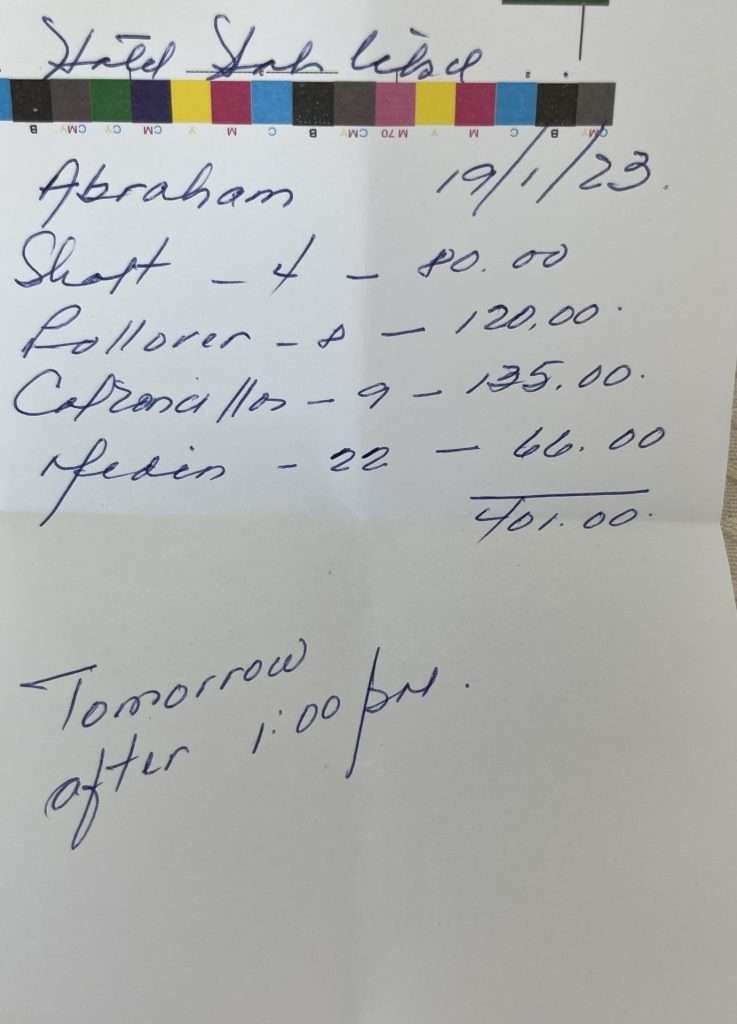 Hotel
B CMY CY CM Y M C B CMY M 70 Y M C B CMY
Abraham 19/1/23.
Short - 4 - 80.00
Pollover - 8 - 120.00.
- 9 - 135.00.
- 22 - 66.00
401.00.
Tomorrow
after 1:00 pm.